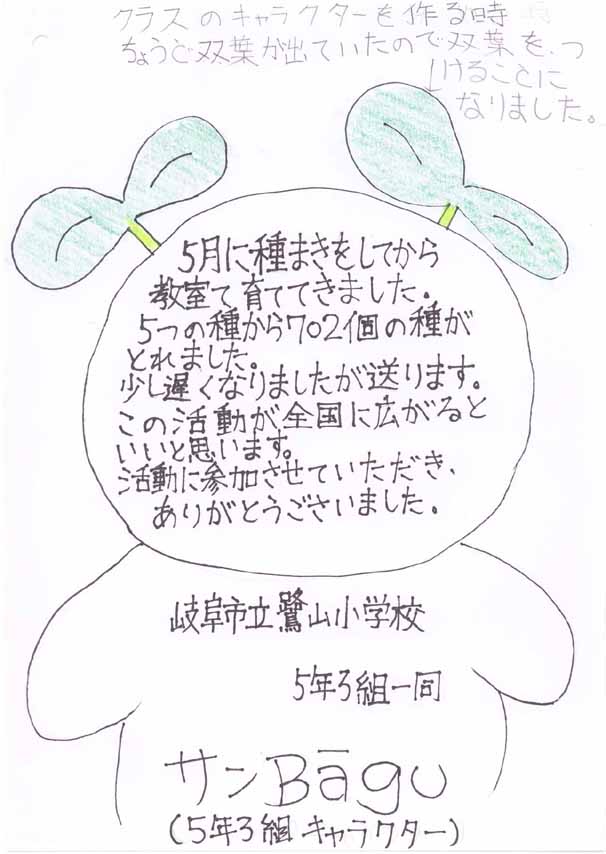 クラスのキャラクターを作る時
ちょうど双葉が出ていたので双葉を、つ
けることに
なりました。
5月に種まきをしてから
教室で育ててきました。
5つの種から702個の種が
とれました。
少し遅くなりましたが送ります。
この活動が全国に広がると
いいと思います。
活動に参加させていただき、
ありがとうございました。
岐阜市立鷺山小学校
5年3組一同
サンBāgu
(5年3組 キャラクター)